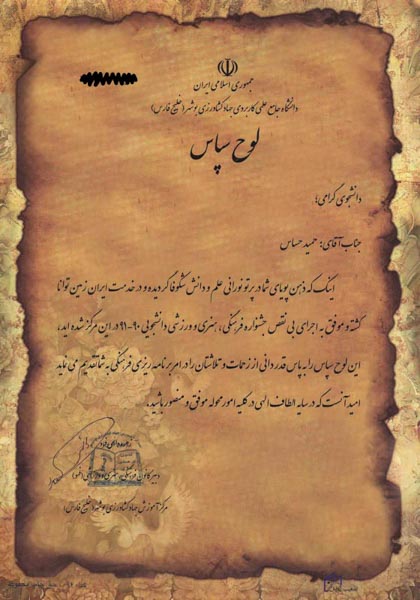 جمهوری اسلامی ایران
دانشگاه جامع علمی کاربردی جهاد کشاورزی بوشهر (خلیج فارس)
لوح سپاس
دانشجوی گرامی؛
جناب آقای: حمید حساس
اینک که ذهن پویای شما در پرتو نورانی علم و دانش شکوفا گردیده و در خدمت ایران زمین توانا
گشته و موفق به اجرای بی نقص جشنواره فرهنگی، هنری و ورزشی دانشجویی ۹۰-۹۱ در این مرکز شده اید،
این لوح سپاس را به پاس قدردانی از زحمات و تلاشتان در امر برنامه ریزی فرهنگی به شما تقدیم می نماید
امید آنست که در سایه الطاف الهی در کلیه امور محوله موفق و منصور باشید.
دبیر کانون فرهنگی، هنری و
مرکز آموزش جهاد کشاورزی بوشهر (خلیج فارس)